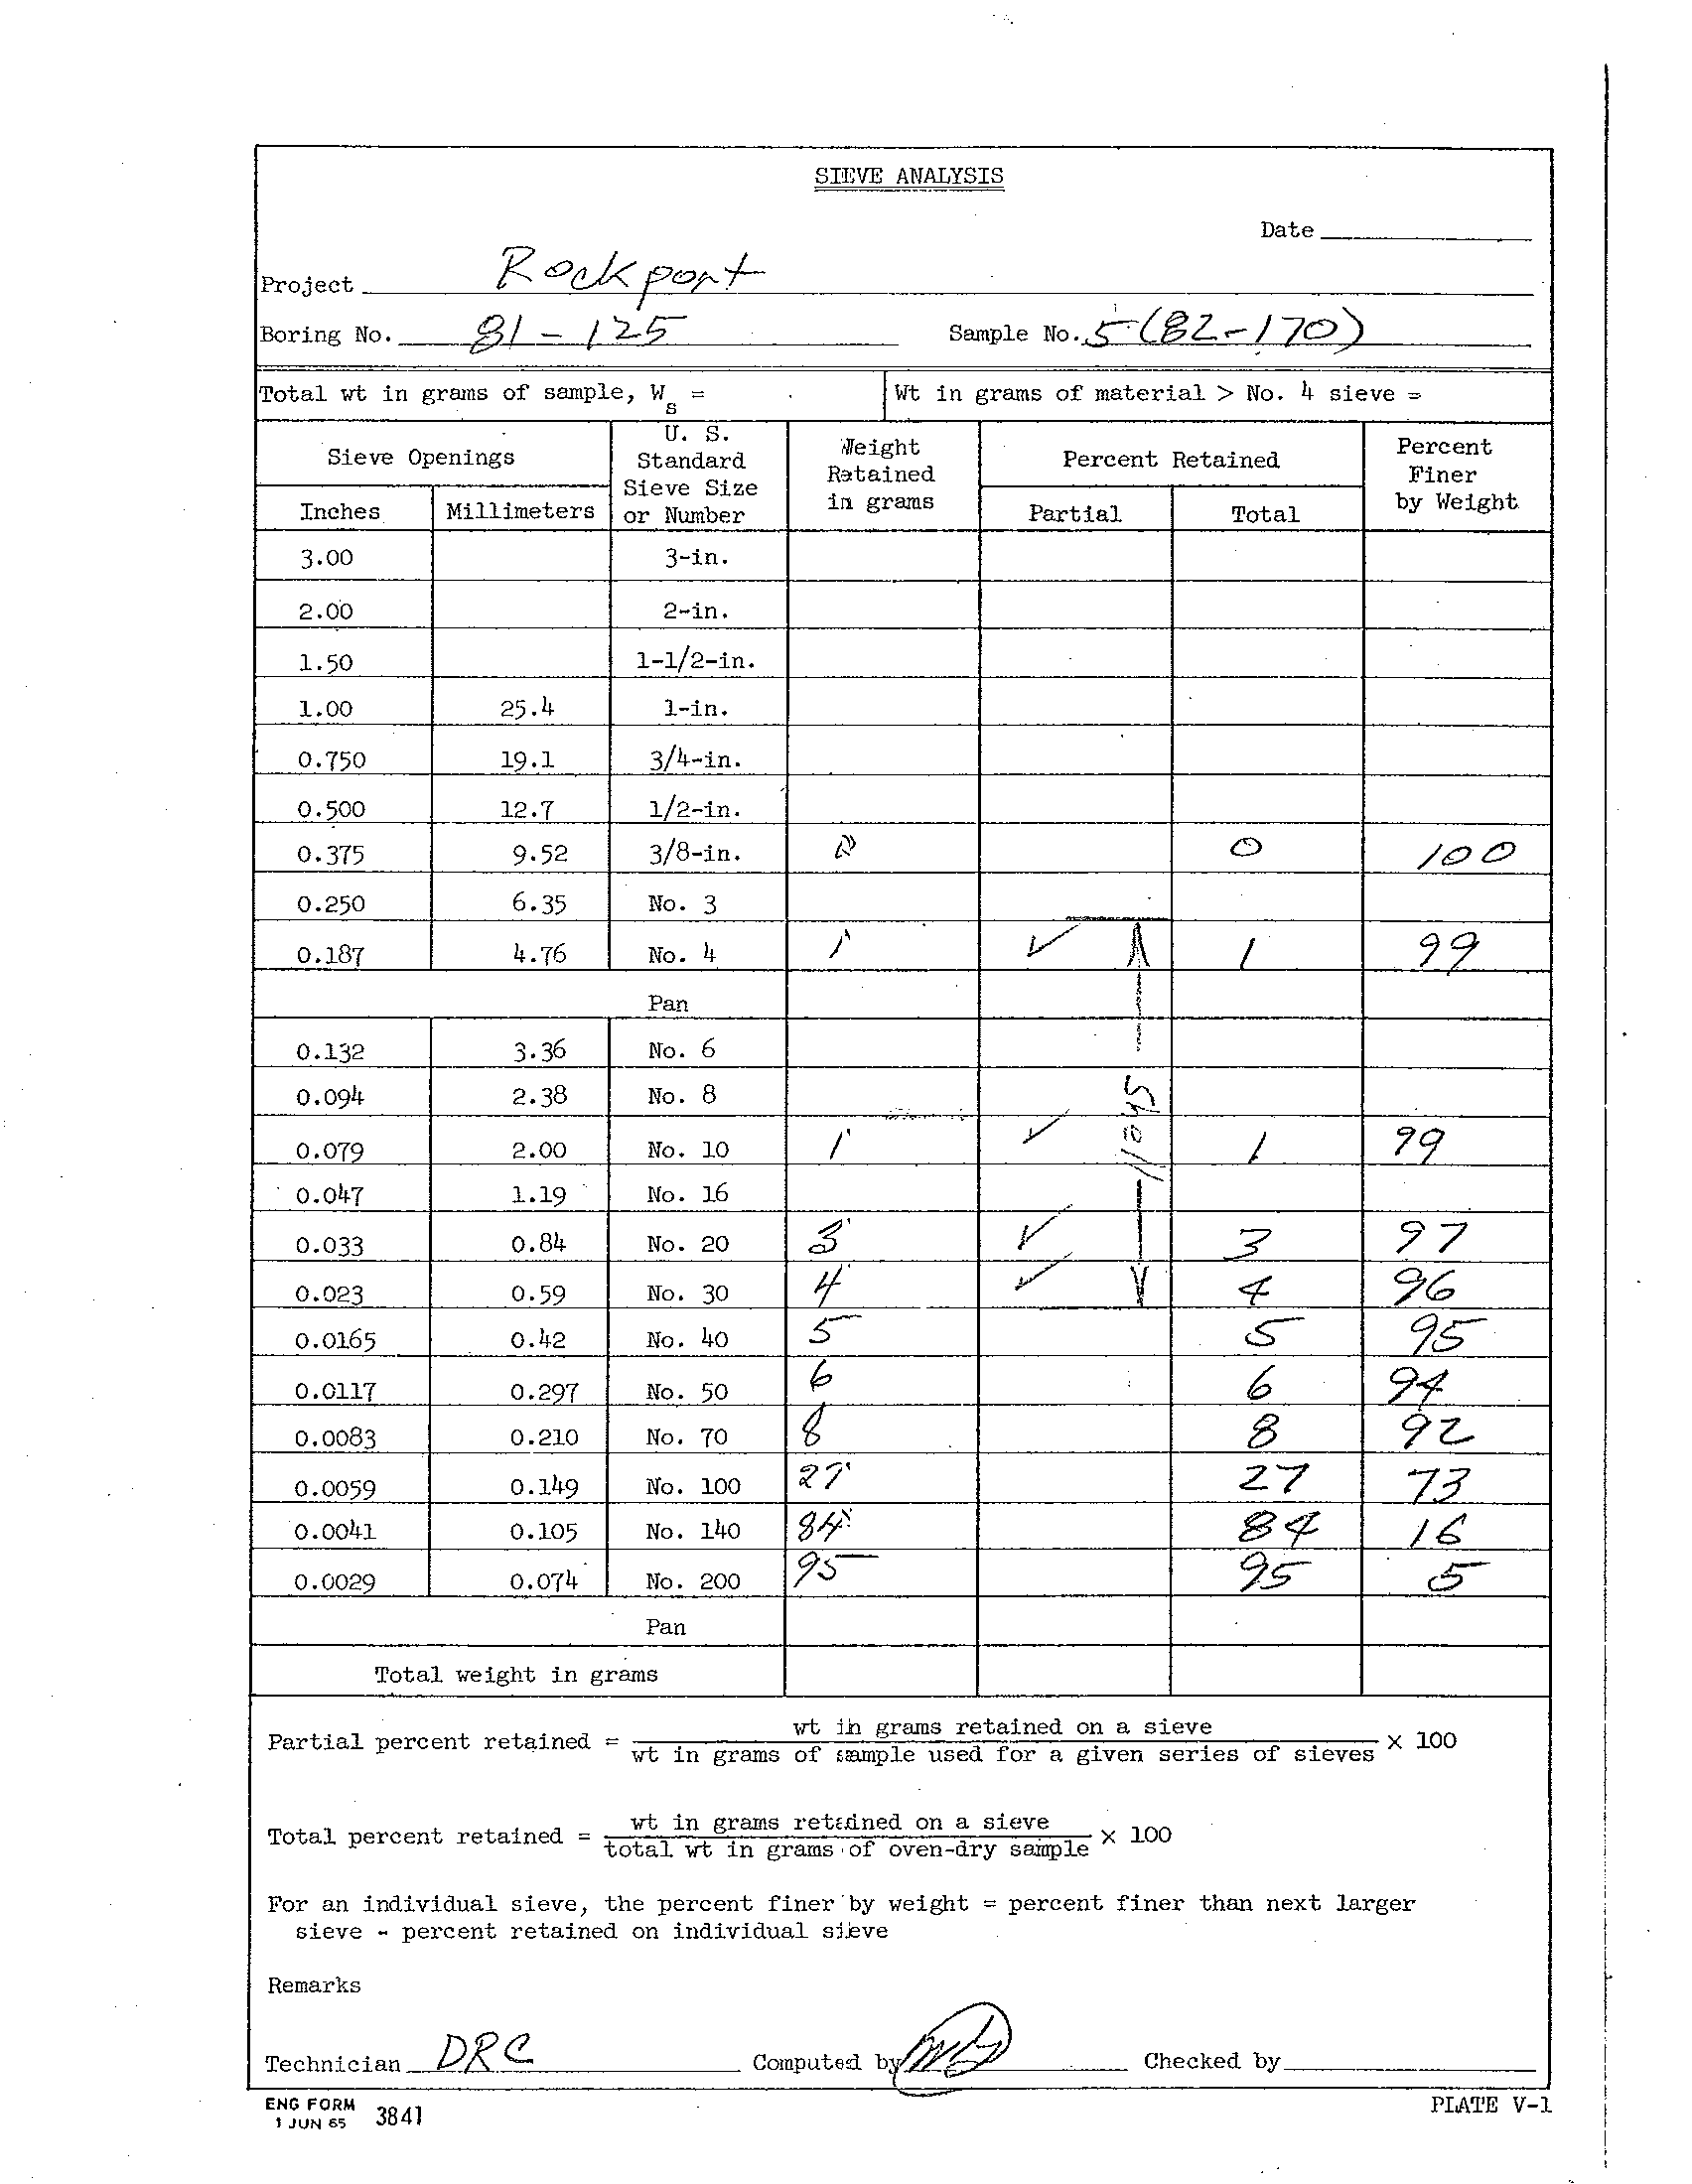 SIEVE ANALYSIS
Date
Project Rockport
Boring No. 81-125 Sample No. 5 (82-170)
Total wt in grams of sample, Ws = Wt in grams of material > No. 4 sieve =
Sieve Openings U. S. Standard Sieve Size or Number Weight Retained in grams Percent Retained Percent Finer by Weight
Inches Millimeters Partial Total
3.00 3-in.
2.00 2-in.
1.50 1-1/2-in.
1.00 25.4 1-in.
0.750 19.1 3/4-in.
0.500 12.7 1/2-in.
0.375 9.52 3/8-in. 0 0 100
0.250 6.35 No. 3
0.187 4.76 No. 4 1 ✓ 1 99
Pan
0.132 3.36 No. 6
0.094 2.38 No. 8
Shells
0.079 2.00 No. 10 1 ✓ 1 99
0.047 1.19 No. 16
0.033 0.84 No. 20 3 ✓ 3 97
0.023 0.59 No. 30 4 ✓ 4 96
0.0165 0.42 No. 40 5 5 95
0.0117 0.297 No. 50 6 6 94
0.0083 0.210 No. 70 8 8 92
0.0059 0.149 No. 100 27 27 73
0.0041 0.105 No. 140 84 84 16
0.0029 0.074 No. 200 95 95 5
Pan
Total weight in grams
Partial percent retained = wt in grams retained on a sieve / wt in grams of sample used for a given series of sieves × 100
Total percent retained = wt in grams retained on a sieve / total wt in grams of oven-dry sample × 100
For an individual sieve, the percent finer by weight = percent finer than next larger
sieve - percent retained on individual sieve
Remarks
Technician DRC Computed by Checked by
ENG FORM 3841
1 JUN 65
PLATE V-1